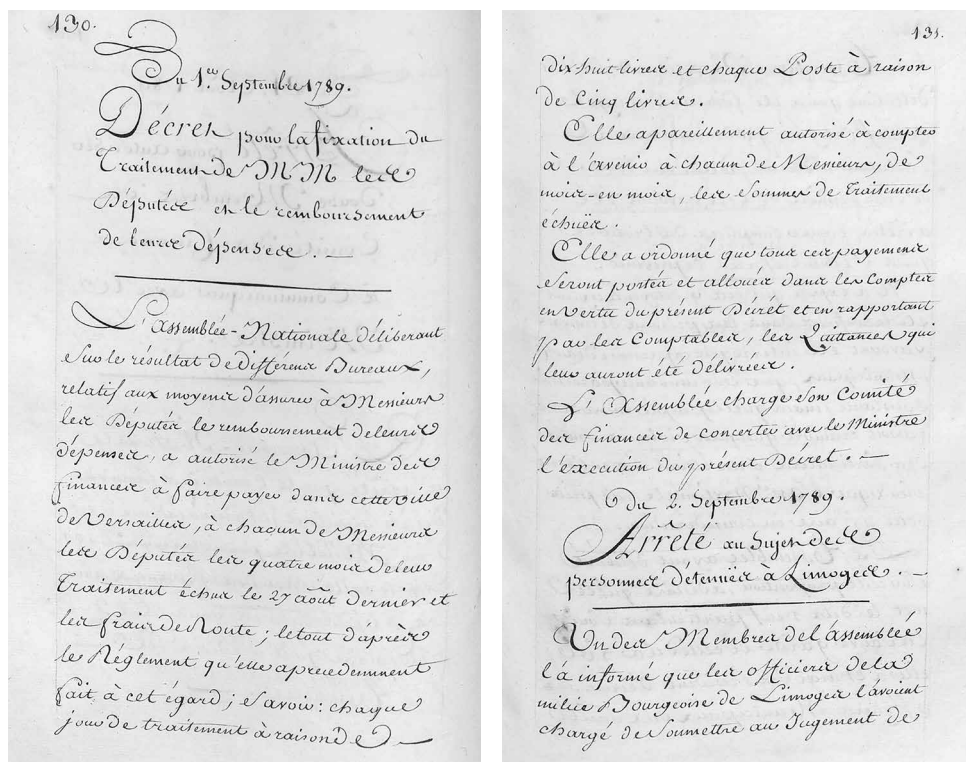 130.
Du 1.er Septembre 1789.
Décret pour la fixation du
Traitement de MM les
Députés et le remboursement
de leurs dépenses.
L'Assemblée-Nationale déliberant
sur le résultat de différens Bureaux,
relatif aux moyens d'assurer à Messieurs
les Députés le remboursement de leurs
dépenses, a autorisé le Ministre des
finances à faire payer dans cette ville
de Versailles, à chacun de Messieurs
les Députés les quatre mois de leur
Traitement échus le 27 août dernier et
les frais de Route; le tout d'après
le Réglement qu'elle a precedemment
fait à cet égard; savoir: chaque
jour de traitement à raison de
131.
dix-huit livres et chaque Poste à raison
de Cinq livres.
Elle a pareillement autorisé à compter
à l'avenir à chacun de Messieurs, de
mois-en mois, les sommes de traitement
échuës.
Elle a ordonné que tous ces payemens
seront portés et alloués dans les Comptes
en Vertu du présent Décret et en rapportant
par les Comptables, les Quittances qui
leur auront été délivrées.
L'Assemblée charge son Comité
des finances de concerter avec le Ministre
l'execution du présent Décret.
du 2. Septembre 1789.
Arrêté au Sujet de
personnes detenuës à Limoges.
Un des Membres de l'assemblée
l'a informé que les officiers de la
milice Bourgeoise de Limoges l'avoient
chargé de Soumettre au Jugement de